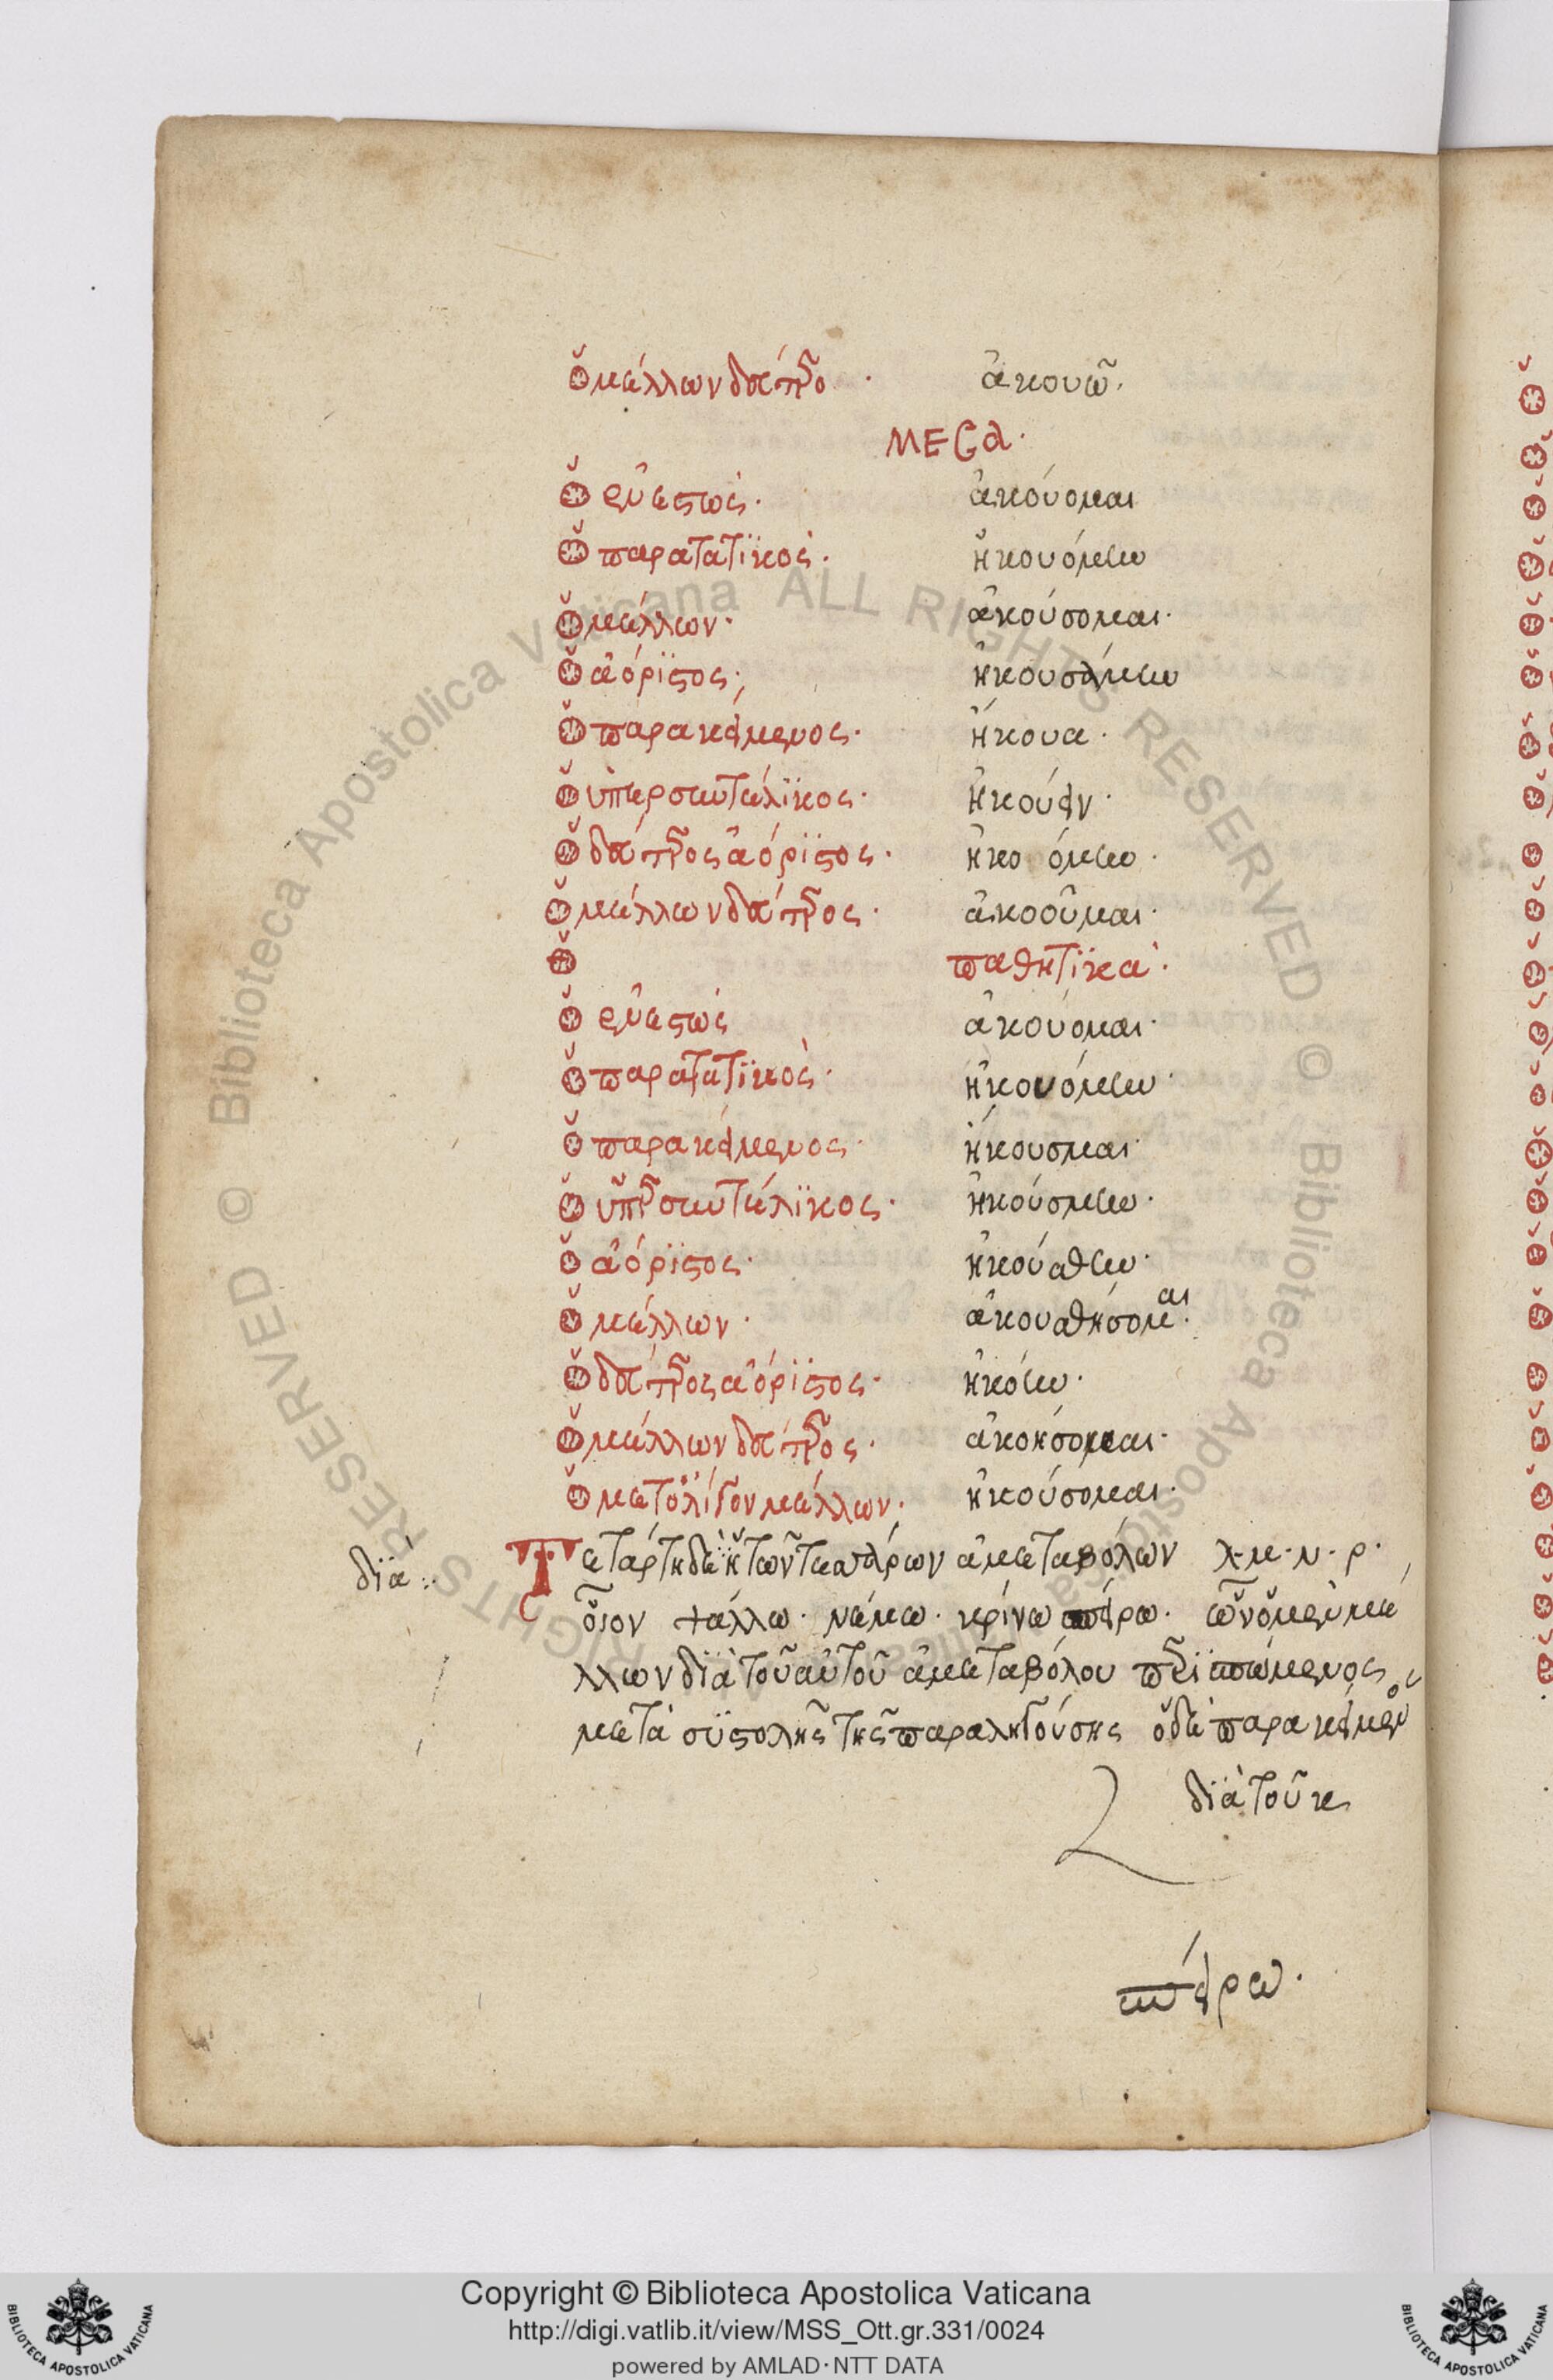 ὁ μέλλων δεύτερο · ἀκουῶ.
ΜΕCΑ·
ὁ ἐνεστώς · ἀκούομαι
ὁ παρατατϊκός · ἠκουόμην
ὁ μέλλων · ἀκούσομαι ·
ὁ ἀόρϊστος · ἠκουσάμην
ὁ παρακείμενος · ἤκουα ·
ὁ ὑπερσυντέλϊκος · ἠκούειν ·
ὁ δεύτερος ἀόρϊστος · ἠκο όμην ·
ὁ μέλλων δεύτερος · ἀκοοῦμαι ·
ὁ παθητϊκά ·
ὁ ἐνεστώς ἀκούομαι ·
ὁ παρατατϊκός · ἠκουόμην ·
ὁ παρακείμενος · ἤκουσμαι ·
ὁ ὑπερσυντέλϊκος · ἠκούσμην ·
ὁ ἀόρϊστος · ἠκούσθην ·
ὁ μέλλων · ἀκουσθήσομαι ·
ὁ δεύτερος ἀόρϊστος · ἠκόην ·
ὁ μέλλων δεύτερος · ἀκοήσομαι ·
ὁ μετολίγον μέλλων · ἠκούσομαι ·
Τετάρτη δὲ ἡ τῶν τεσσάρων ἀμεταβόλων λ · μ · ν · ρ ·
δϊὰ
οἷον ψάλλω · νέμω · κρίνω σπείρω · ὧν ὁ μὲν μέ
λλων δϊὰ τοῦ αὐτοῦ ἀμεταβόλου περϊσπώμενος
μετὰ συστολῆς τῆς παραληγούσης ὁ δὲ παρακείμενος
δϊὰ τοῦ κ
σπείρω ·
Copyright © Biblioteca Apostolica Vaticana
http://digi.vatlib.it/view/MSS_Ott.gr.331/0024
powered by AMLAD·NTT DATA